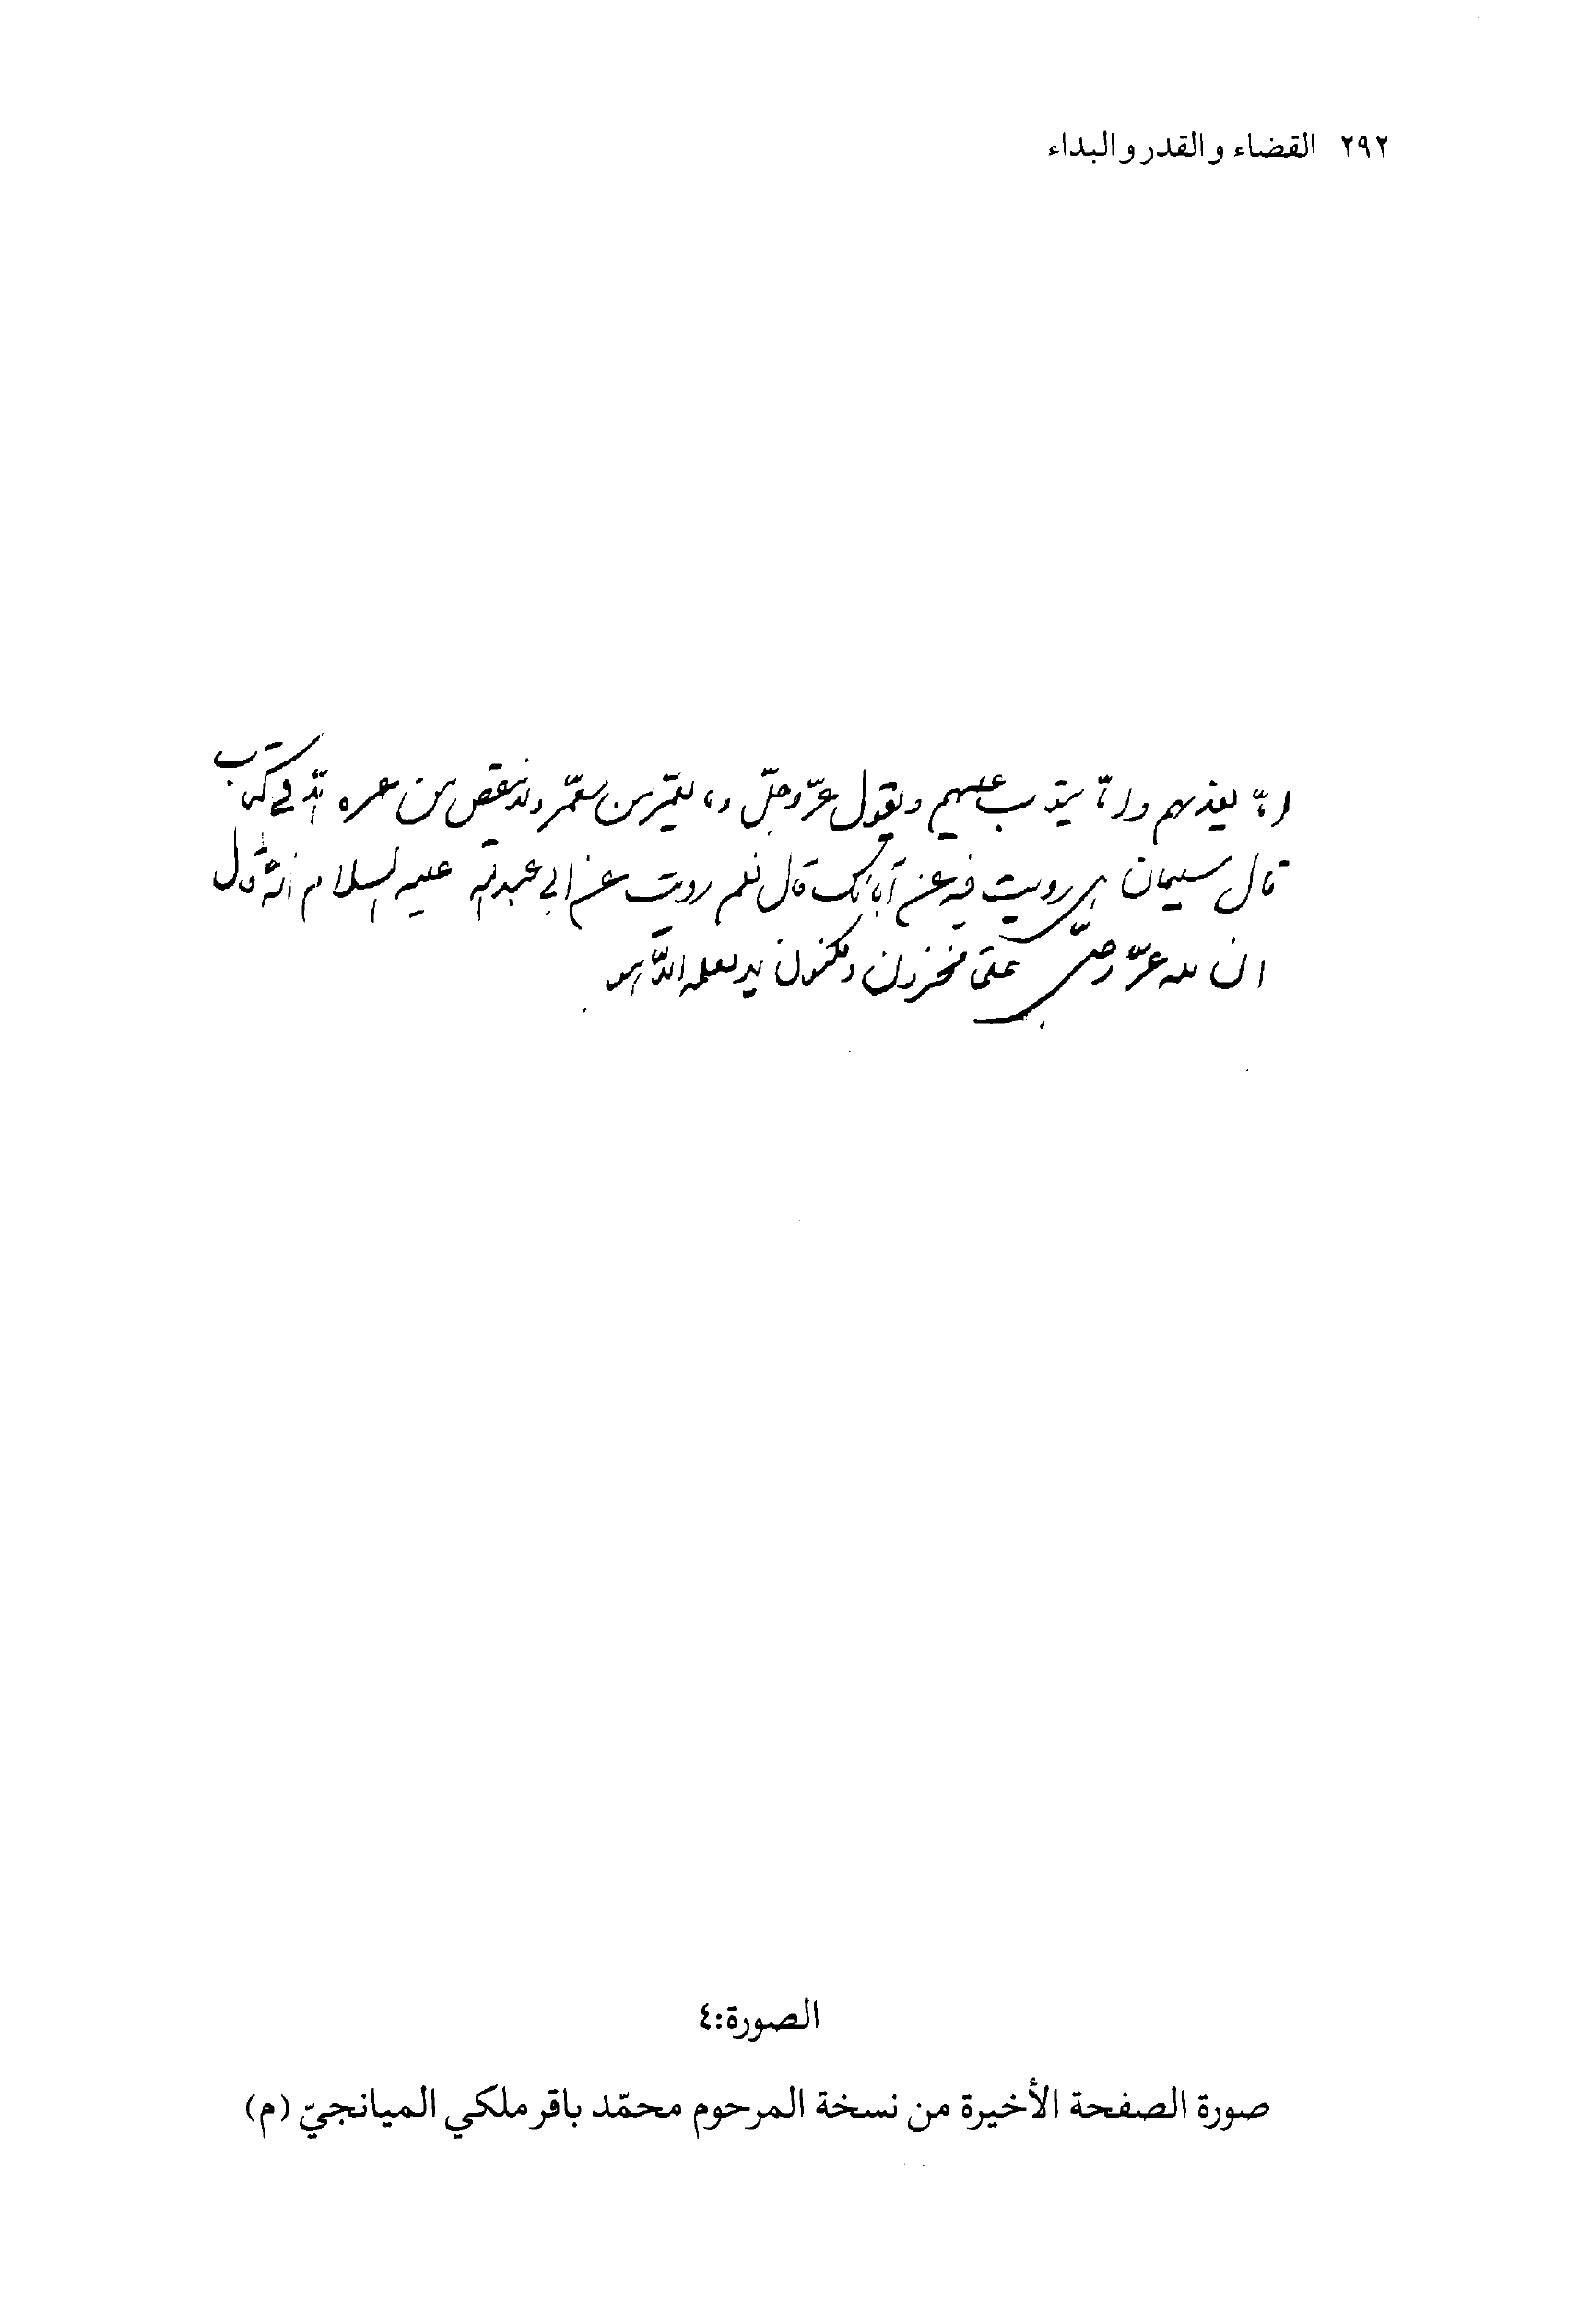 ٢٩٢ القضاء و القدر و البداء
امّا يعذبهم واما يتوب عليهم ويقول عزّ وجلّ وما يعمّر من معمّر ولا ينقص من عمره الّا في كتاب
قال سليمان هل رويت فيه عن آبائك قال نعم رويت عن ابي عبدالله عليه السلام انّه قال
ان لله عزّ وجلّ علمين علما مخزونا مكنونا لا يعلمه الّا هو
الصورة:٤
صورة الصفحة الأخيرة من نسخة المرحوم محمّد باقر ملكي الميانجيّ (م)